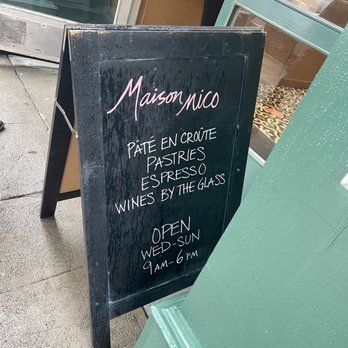 Maison nico
PÂTÉ EN CROÛTE
PASTRIES
ESPRESSO
WINES BY THE GLASS
OPEN
WED-SUN
9AM-6PM